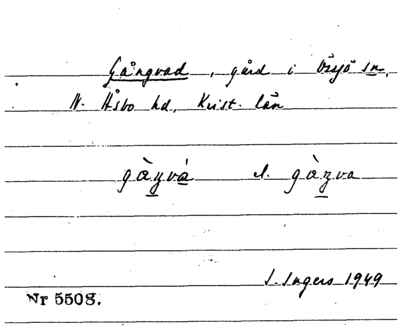 Gångvad, gård i Össjö sn,
N. Åsbo hd, Krist. län
gàŋvá el. gàŋva
I. Ingers 1949
Nr 5508.